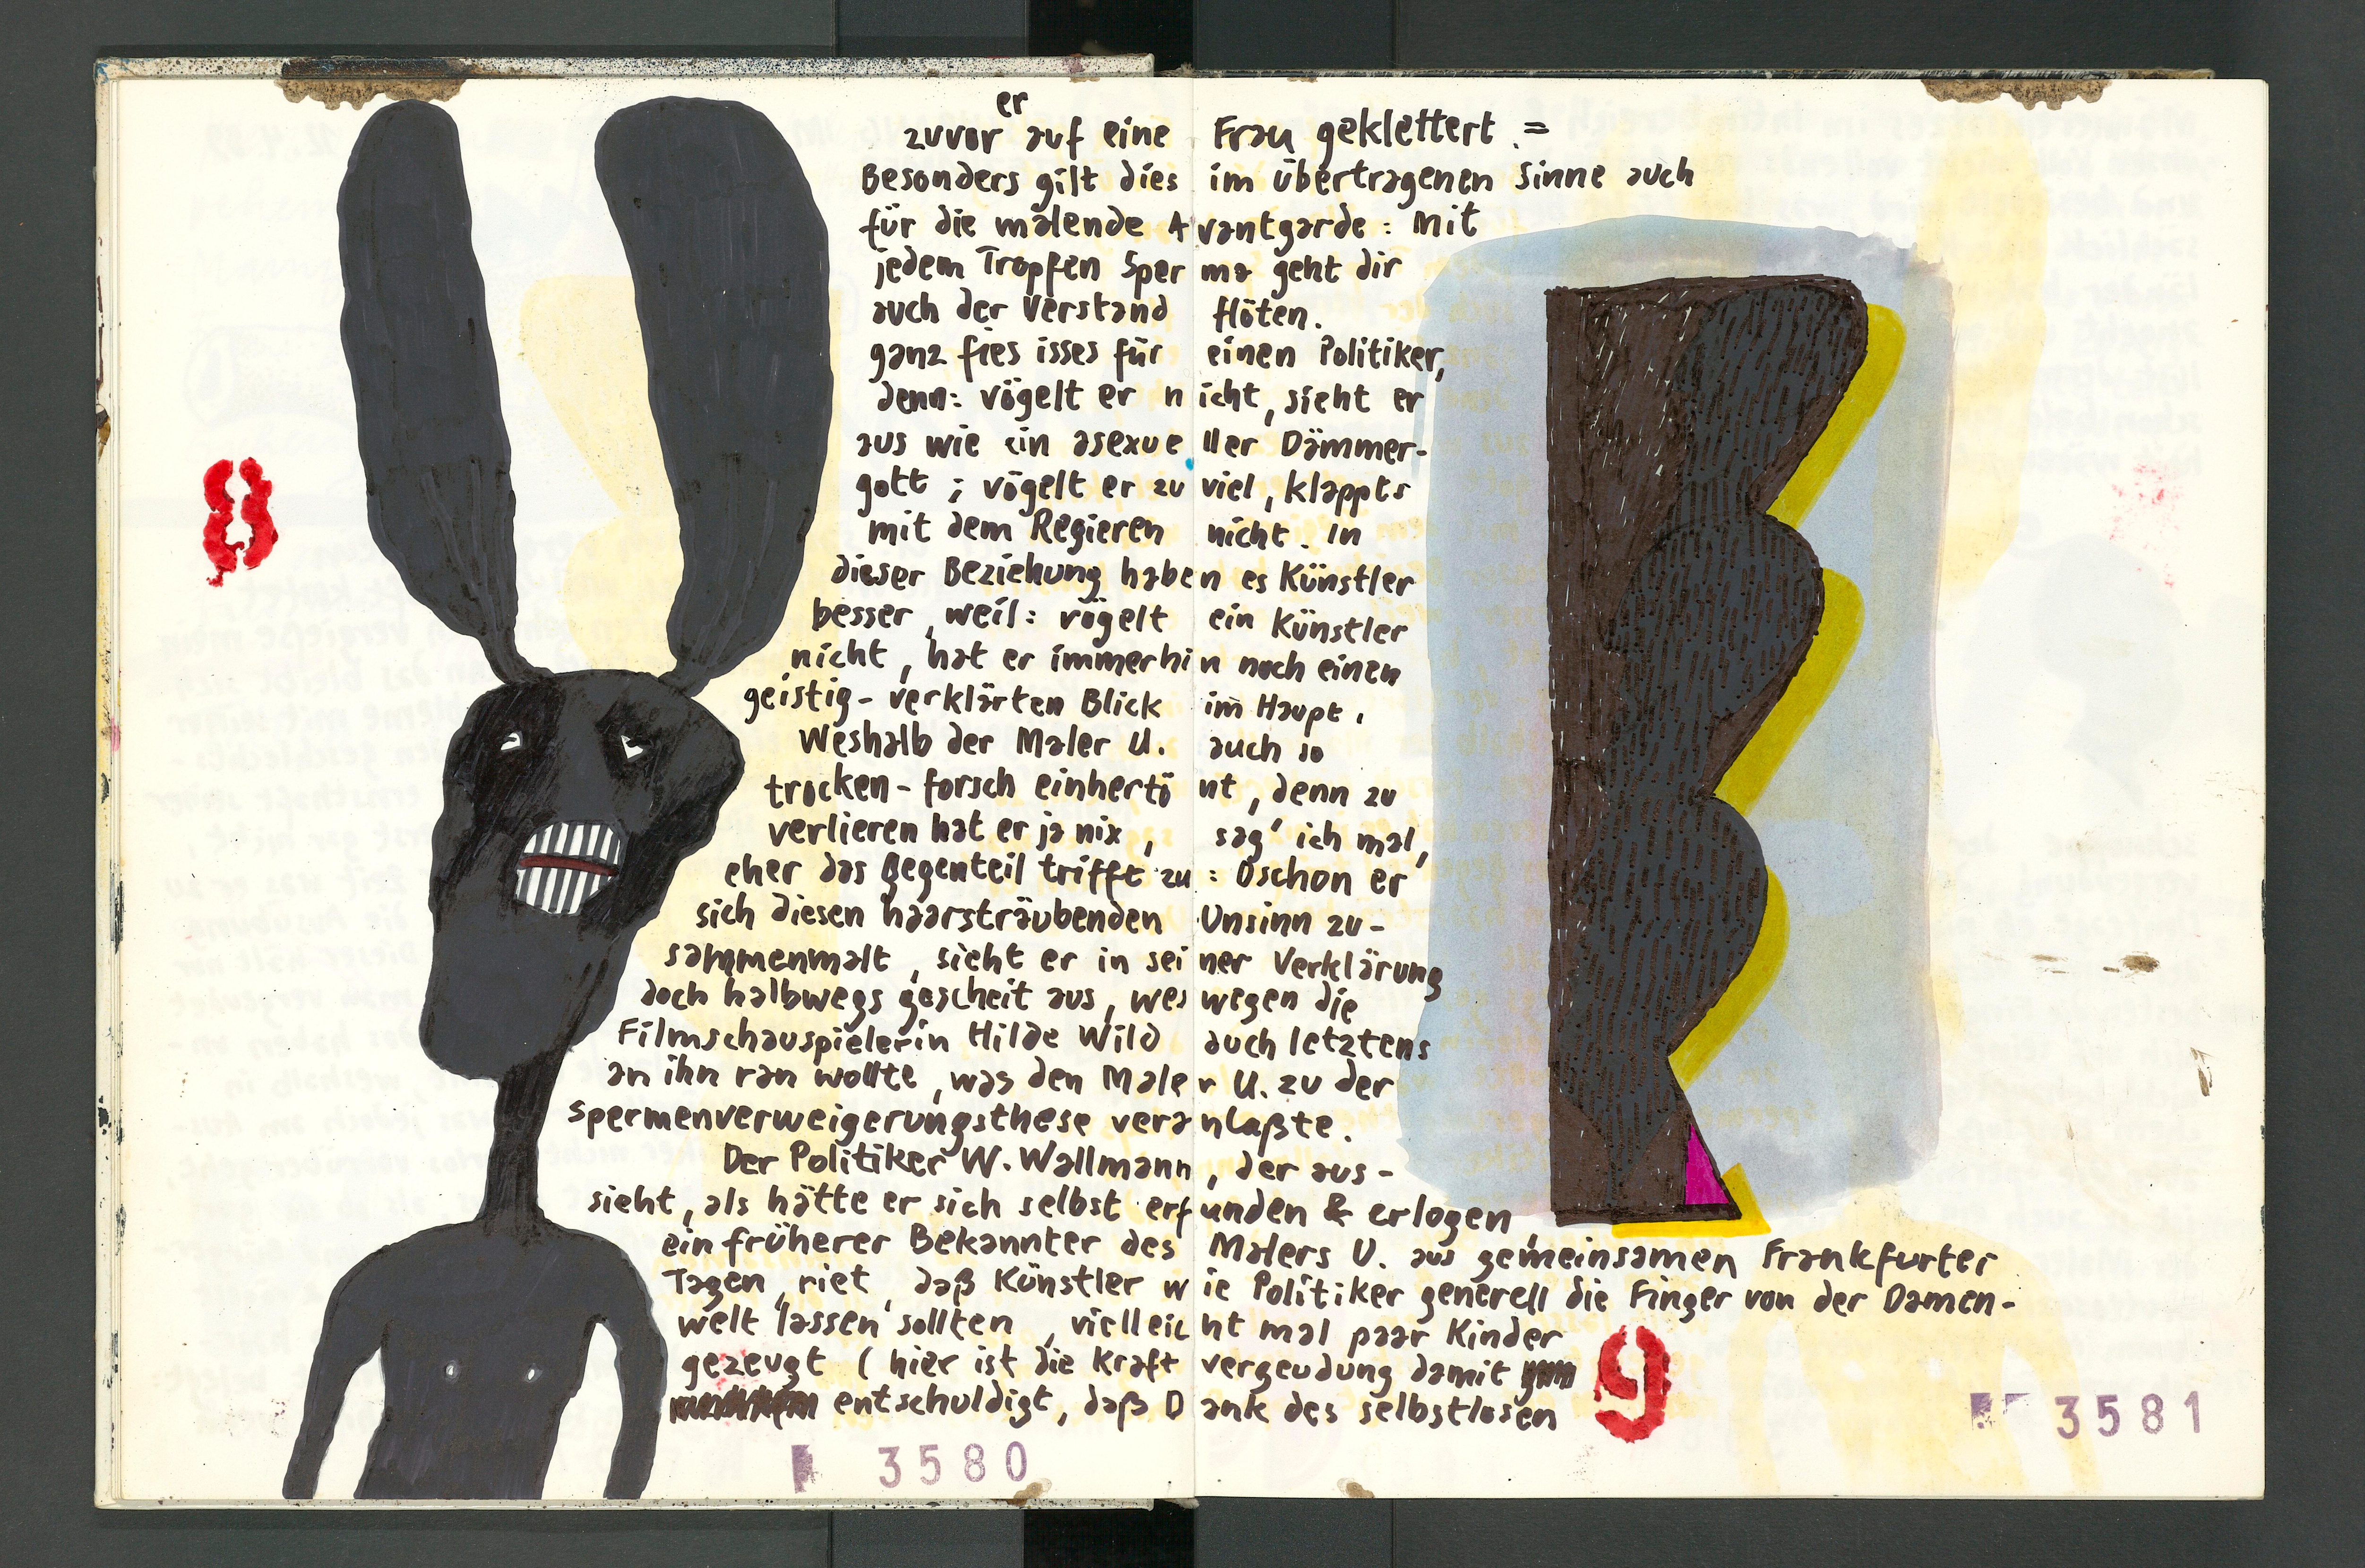 er
zuvor auf eine Frau geklettert. =
Besonders gilt dies im übertragenen Sinne auch
für die malende Avantgarde: Mit
jedem Tropfen Sperma geht dir
auch der Verstand flöten.
ganz fies isses für einen Politiker,
denn: vögelt er nicht, sieht er
aus wie ein asexueller Dämmer-
gott; vögelt er zu viel, klappts
mit dem Regieren nicht. In
dieser Beziehung haben es Künstler
besser, weil: vögelt ein Künstler
nicht, hat er immerhin noch einen
geistig-verklärten Blick im Haupt.
Weshalb der Maler U. auch so
trocken-forsch einhertönt, denn zu
verlieren hat er ja nix, sag' ich mal,
eher das Gegenteil trifft zu: Oschon er
sich diesen haarsträubenden Unsinn zu-
sammenmalt, sieht er in seiner Verklärung
doch halbwegs gescheit aus, wes wegen die
Filmschauspielerin Hilde Wild auch letztens
an ihn ran wollte, was den Maler U. zu der
Spermenverweigerungsthese veranlaßte.
Der Politiker W. Wallmann, der aus-
sieht, als hätte er sich selbst erfunden & erlogen,
ein früherer Bekannter des Malers U. aus gemeinsamen Frankfurter
Tagen, riet, daß Künstler wie Politiker generell die Finger von der Damen-
welt lassen sollten, vielleicht mal paar Kinder
gezeugt (hier ist die Kraftvergeudung damit
entschuldigt, daß Dank des selbstlosen
8
9
3580
3581